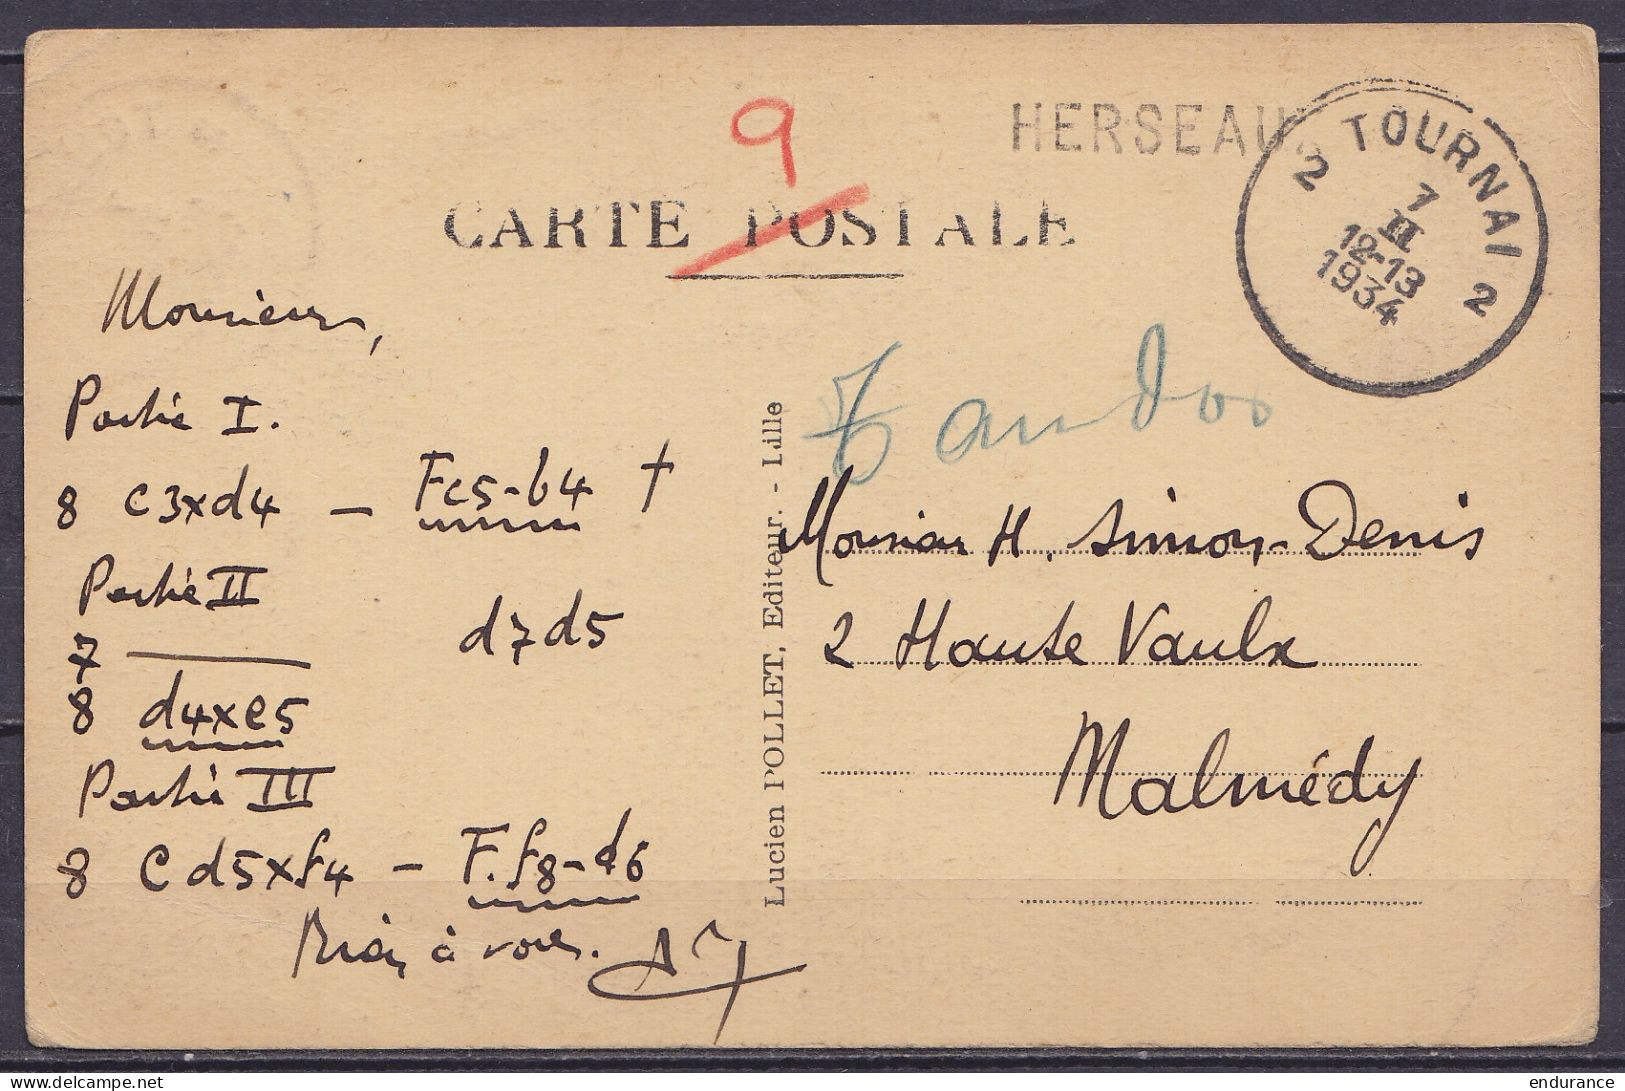 9
HERSEAUX
CARTE POSTALE
2 TOURNAI 2
7
II
12-13
1934
Monsieur,
Partie I.
8 c3xd4 – Fc5-b4 †
Partie II
7 —— d7d5
8 d4xe5
Partie III
8 Cd5xf4 – F.f8-d6
Bien à vous.
Lucien POLLET, Editeur. - Lille
Monsieur H. Simon-Denis
2 Haute Vaulx
Malmédy
endurance
delcampe.net